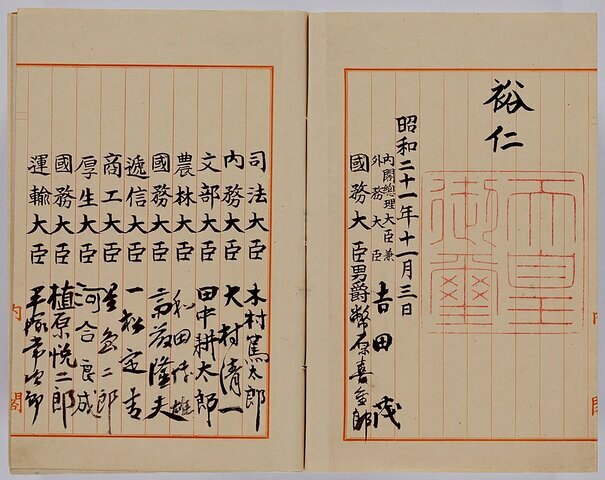 裕仁
天皇
御璽
昭和二十一年十一月三日
內閣總理大臣兼
外務大臣 吉田茂
國務大臣 男爵 幣原喜重郎
司法大臣 木村篤太郎
內務大臣 大村清一
文部大臣 田中耕太郎
農林大臣 和田博雄
國務大臣 斎藤隆夫
遞信大臣 一松定吉
商工大臣 星島二郎
厚生大臣 河合良成
國務大臣 植原悦二郎
運輸大臣 平塚常次郎
內閣